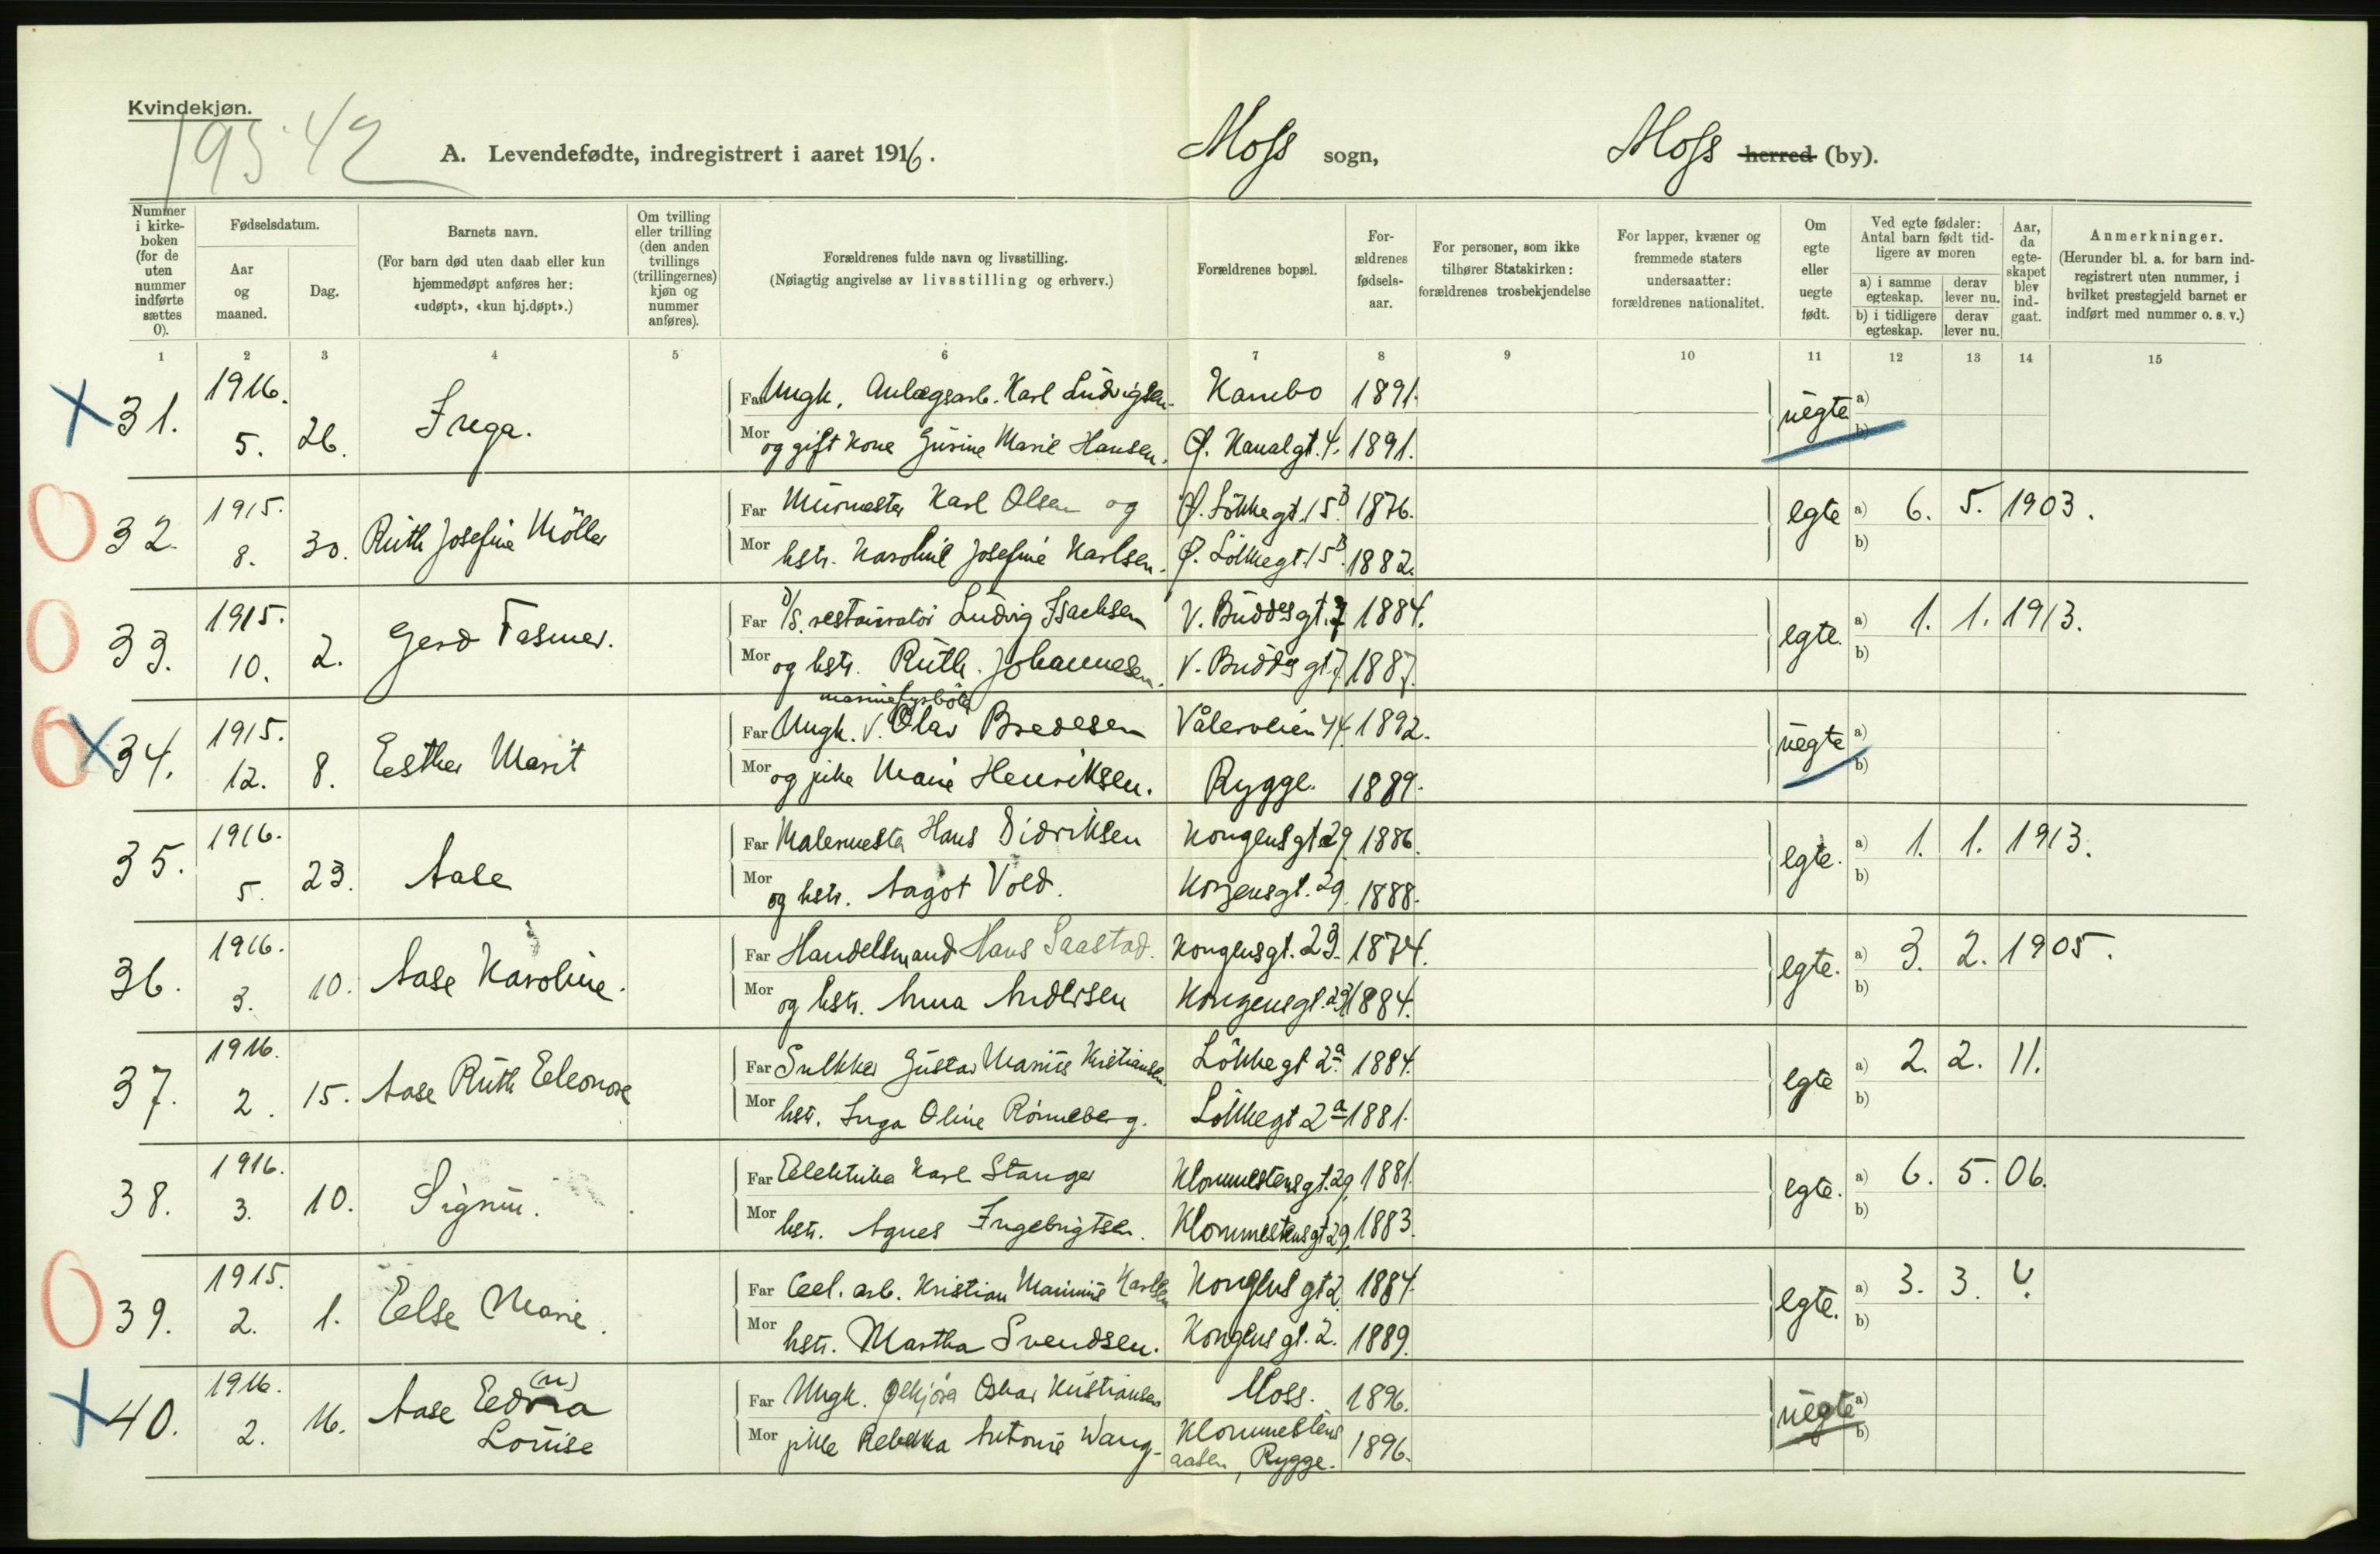 Kvindekjøn.
19542
A. Levendefødte, indregistrert i aaret 1916.
Moss sogn,
Moss herred (by).
Nummer i kirke-boken (for de uten nummer indførte sættes 0).
Fødselsdatum.
Aar og maaned.
Dag.
Barnets navn.
(For barn død uten daab eller kun hjemmedøpt anføres her: «udøpt», «kun hj.døpt».)
Om tvilling eller trilling (den anden tvillings (trillingernes) kjøn og nummer anføres).
Forældrenes fulde navn og livsstilling.
(Nøiagtig angivelse av livsstilling og erhverv.)
Forældrenes bopæl.
For-ældrenes fødsels-aar.
For personer, som ikke tilhører Statskirken: forældrenes trosbekjendelse
For lapper, kvæner og fremmede staters undersaatter: forældrenes nationalitet.
Om egte eller uegte født.
Ved egte fødsler: Antal barn født tid-ligere av moren
a) i samme egteskap.
derav lever nu.
b) i tidligere egteskap.
derav lever nu.
Aar, da egte-skapet blev ind-gaat.
Anmerkninger.
(Herunder bl. a. for barn ind-registrert uten nummer, i hvilket prestegjeld barnet er indført med nummer o. s. v.)
1 2 3 4 5 6 7 8 9 10 11 12 13 14 15
31. 1916. 5. 26. Far Ungk. Anlægsarb. Karl Ludvigsen. Kambo 1891. uegte a)
Mor og gift kone Gusine Marie Hansen. Ø. Kanalgt. 4. 1891. b)
32. 1915. 8. 30. Ruth Josefine Möller Far Murmester Karl Olsen og Ø. Lökkegt. 15B 1876. egte a) 6. 5. 1903.
Mor hstr. Karoline Josefine Karlsen. Ø. Lökkegt. 15B. 1882. b)
33. 1915. 10. 2. Gerd Fasmer. Far D/S. restauratör Ludvig Isachsen V. Buddes gt. 7 1884. egte. a) 1. 1. 1913.
Mor og hstr. Ruth Johannesen. V. Buddes gt. 7. 1887. b)
marinefyrböter
34. 1915. 12. 8. Esther Marit Far Ungk. v. Olav Bredesen Vålerveien 44. 1892. uegte a)
Mor og pike Marie Henriksen. Rygge. 1889. b)
35. 1916. 5. 23. Aase Far Malermester Hans Didriksen Kongensgt 29. 1886. egte. a) 1. 1. 1913.
Mor og hstr. Aagot Vold. Kongensgt. 29. 1888. b)
36. 1916. 3. 10. Aase Karoline. Far Handelsmand Hans Saastad. Kongensgt. 23. 1874. egte. a) 3. 2. 1905.
Mor og hstr. Anna Andersen Kongensgt. 23. 1884. b)
37. 1916. 2. 15. Aase Ruth Eleonore Far Snekker Gustav Marius Kristiansen. Lökkegt 2a 1884. egte a) 2. 2. 11.
Mor hstr. Inga Oline Rönneberg. Lökkegt 2a 1881. b)
38. 1916. 3. 10. Sigrun. Far Elektriker Karl Stanger Klommestensgt. 29. 1881. egte. a) 6. 5. 06.
Mor hstr. Agnes Ingebrigtsen. Klommestensgt 29. 1883. b)
39. 1915. 2. 1. Else Marie. Far Cel. arb. Kristian Karlsen Kongens gt 2 1884. egte. a) 3. 3. ?
Mor hstr. Martha Svendsen. Kongens gt. 2. 1889. b)
40. 1916. 2. 16. Aase Edna (n) Louise Far Ungk. Oskar Kristiansen Moss. 1896. uegte a)
Mor pike Rebekka Antonie Wang. Klommestensaasen, Rygge. 1896. b)